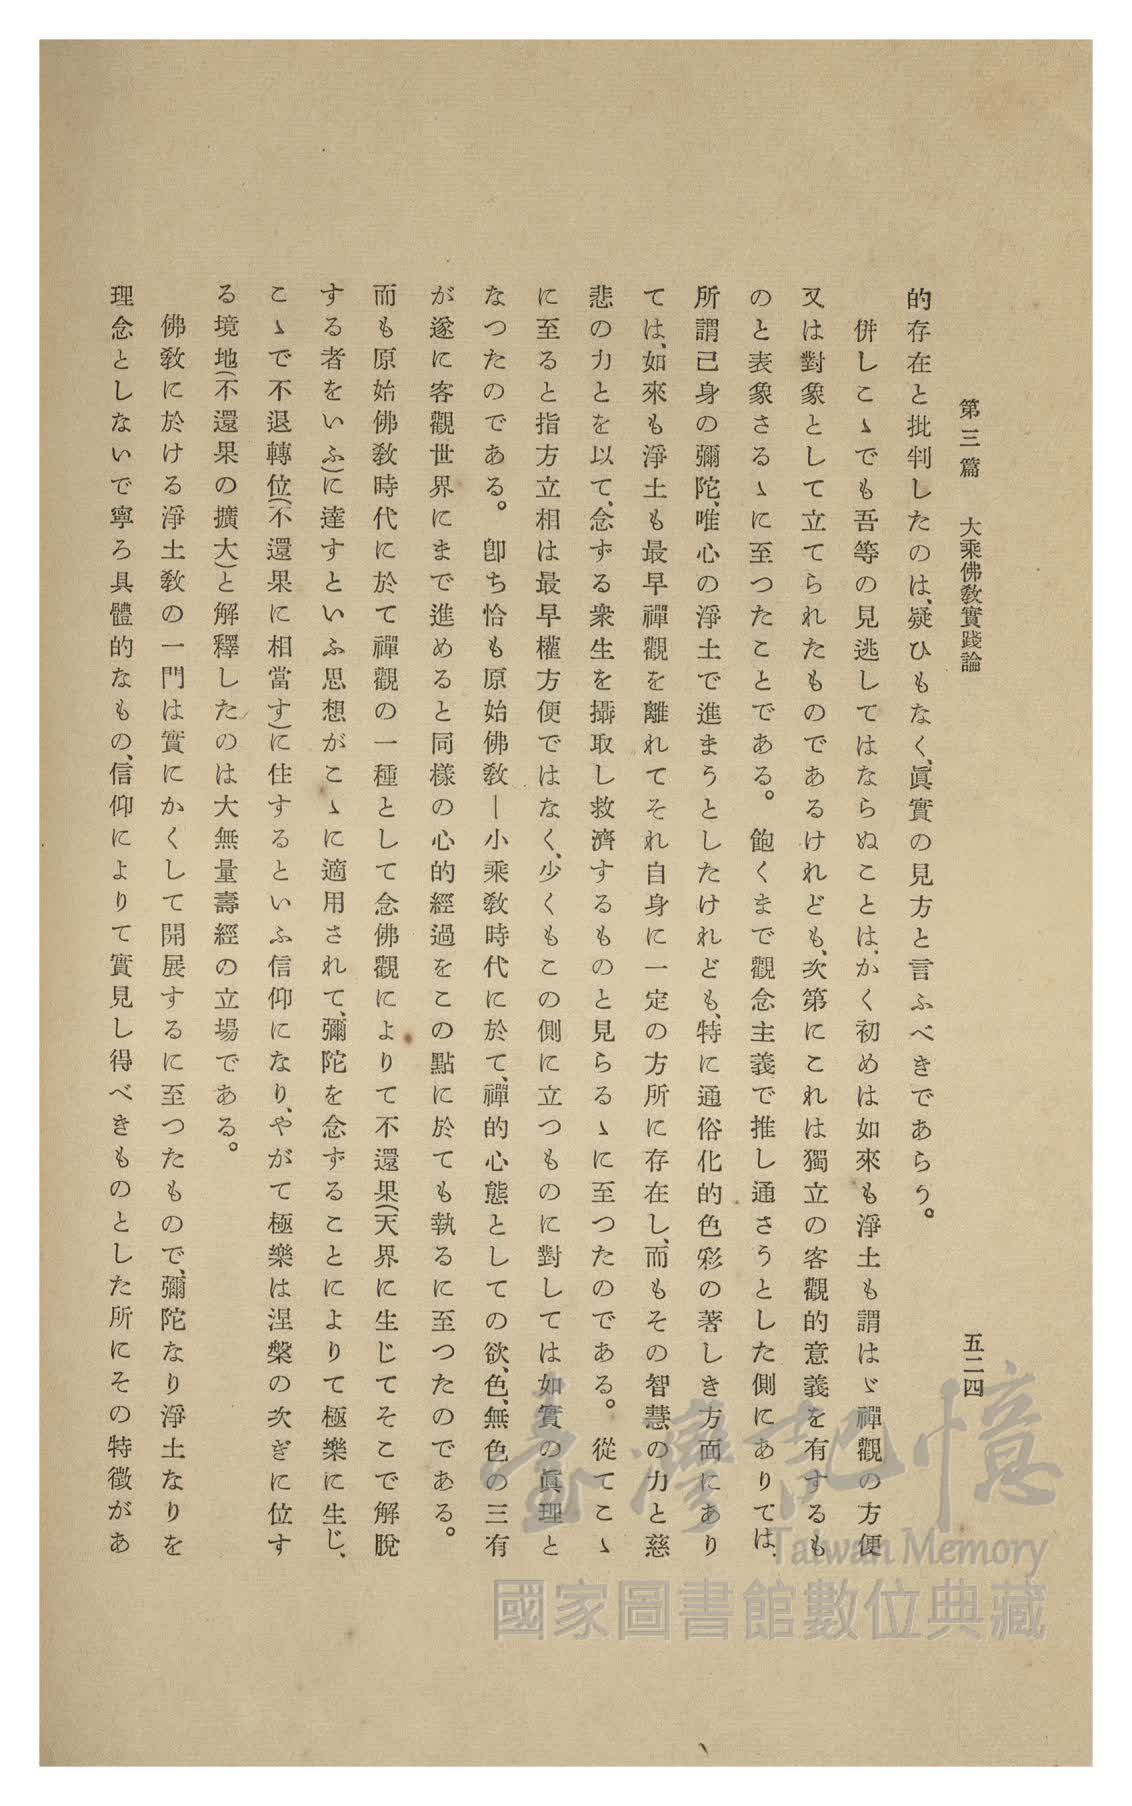 第三篇　大乘佛敎實踐論
五二四
的存在と批判したのは、疑ひもなく、眞實の見方と言ふべきであらう。
併しこゝでも吾等の見逃してはならぬことは、かく初めは如來も淨土も謂はゞ禪觀の方便
又は對象として立てられたものであるけれども、次第にこれは獨立の客觀的意義を有するも
のと表象さるゝに至つたことである。飽くまで觀念主義で推し通さうとした側にありては、
所謂己身の彌陀、唯心の淨土で進まうとしたけれども、特に通俗化的色彩の著しき方面にあり
ては、如來も淨土も最早禪觀を離れてそれ自身に一定の方所に存在し、而もその智慧の力と慈
悲の力とを以て、念ずる衆生を攝取し救濟するものと見らるゝに至つたのである。從てこゝ
に至ると指方立相は最早權方便ではなく、少くもこの側に立つものに對しては如實の眞理と
なつたのである。卽ち恰も原始佛敎—小乘敎時代に於て、禪的心態としての欲、色、無色の三有
が遂に客觀世界にまで進めると同樣の心的經過をこの點に於ても執るに至つたのである。
而も原始佛敎時代に於て禪觀の一種として念佛觀によりて不還果(天界に生じてそこで解脫
する者をいふ)に達すといふ思想がこゝに適用されて、彌陀を念ずることによりて極樂に生じ、
こゝで不退轉位(不還果に相當す)に住するといふ信仰になり、やがて極樂は涅槃の次ぎに位す
る境地(不還果の擴大)と解釋したのは大無量壽經の立場である。
佛敎に於ける淨土敎の一門は實にかくして開展するに至つたもので、彌陀なり淨土なりを
理念としないで寧ろ具體的なもの、信仰によりて實見し得べきものとした所にその特徵があ
臺灣記憶
Taiwan Memory
國家圖書館數位典藏